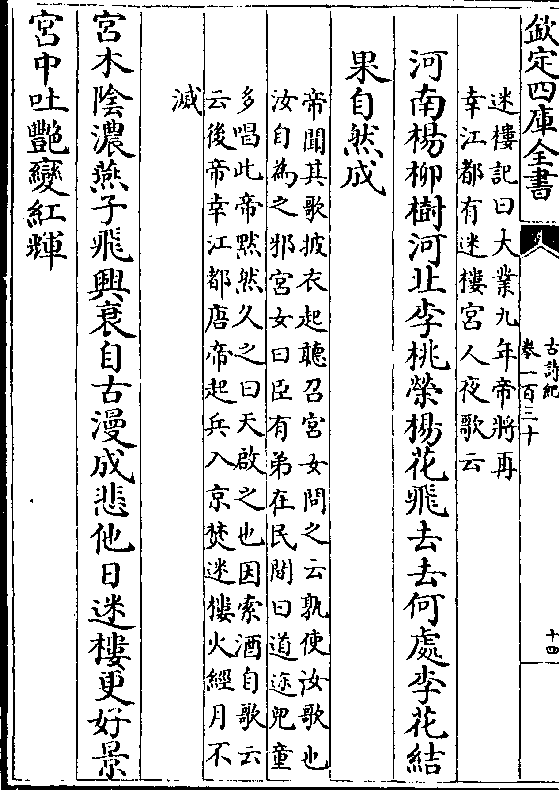 欽定四庫全書
古詩紀
卷一百三十
十四
迷樓記曰大業九年帝將再
幸江都有迷樓宮人夜歌云
河南楊柳樹河北李桃榮楊花飛去去何處李花結
果自然成
帝聞其歌披衣起聽召宮女問之云孰使汝歌也
汝自為之邪宮女曰臣有弟在民間曰道途兒童
多唱此帝黙然久之曰天啟之也因索酒自歌云
云後帝幸江都唐帝起兵入京焚迷樓火經月不
滅
宮木陰濃燕子飛興衰自古漫成悲他日迷樓更好景
宮中吐艷變紅輝